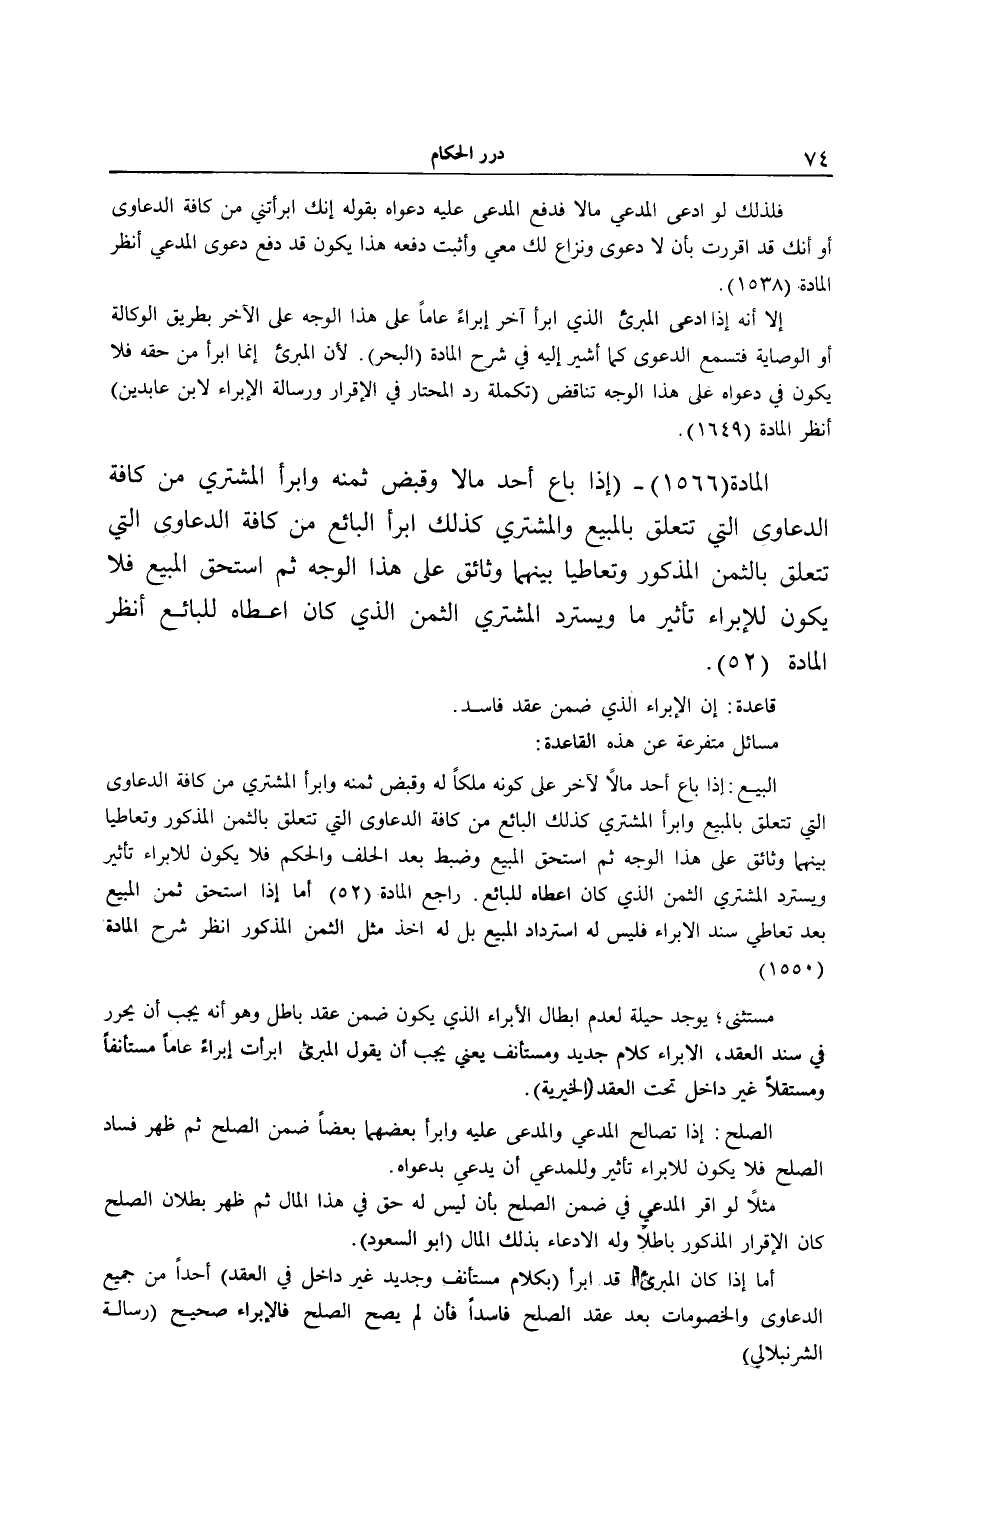 ٧٤
درر الحكام
فلذلك لو ادعى المدعي مالا فدفع المدعى عليه دعواه بقوله إنك ابرأتني من كافة الدعاوى
أو أنك قد اقررت بأن لا دعوى ونزاع لك معي وأثبت دفعه هذا يكون قد دفع دعوى المدعي أنظر
المادة (١٥٣٨).
إلا أنه إذا ادعى المبرئ الذي ابرأ آخر إبراءً عاماً على هذا الوجه على الآخر بطريق الوكالة
أو الوصاية فتسمع الدعوى كما أشير إليه في شرح المادة (البحر). لأن المبرئ إنما ابرأ من حقه فلا
يكون في دعواه على هذا الوجه تناقض (تكملة رد المحتار في الإقرار ورسالة الإبراء لابن عابدين)
أنظر المادة (١٦٤٩).
المادة(١٥٦٦) - (إذا باع أحد مالا وقبض ثمنه وابرأ المشتري من كافة
الدعاوى التي تتعلق بالمبيع والمشتري كذلك ابرأ البائع من كافة الدعاوى التي
تتعلق بالثمن المذكور وتعاطيا بينهما وثائق على هذا الوجه ثم استحق المبيع فلا
يكون للإبراء تأثير ما ويسترد المشتري الثمن الذي كان اعطاه للبائع أنظر
المادة (٥٢).
قاعدة: إن الإبراء الذي ضمن عقد فاسد.
مسائل متفرعة عن هذه القاعدة:
البيع: إذا باع أحد مالًا لآخر على كونه ملكاً له وقبض ثمنه وابرأ المشتري من كافة الدعاوى
التي تتعلق بالمبيع وابرأ المشتري كذلك البائع من كافة الدعاوى التي تتعلق بالثمن المذكور وتعاطيا
بينهما وثائق على هذا الوجه ثم استحق المبيع وضبط بعد الحلف والحكم فلا يكون للابراء تأثير
ويسترد المشتري الثمن الذي كان اعطاه للبائع. راجع المادة (٥٢) أما إذا استحق ثمن المبيع
بعد تعاطي سند الابراء فليس له استرداد المبيع بل له اخذ مثل الثمن المذكور انظر شرح المادة
(١٥٥٠)
مستثنى؛ يوجد حيلة لعدم ابطال الأبراء الذي يكون ضمن عقد باطل وهو أنه يجب أن يحرر
في سند العقد، الابراء كلام جديد ومستأنف يعني يجب أن يقول المبرئ ابرأت إبراءً عاماً مستأنفاً
ومستقلاً غير داخل تحت العقد (الخيرية).
الصلح: إذا تصالح المدعي والمدعى عليه وابرأ بعضهما بعضاً ضمن الصلح ثم ظهر فساد
الصلح فلا يكون للابراء تأثير وللمدعي أن يدعي بدعواه.
مثلًا لو اقر المدعي في ضمن الصلح بأن ليس له حق في هذا المال ثم ظهر بطلان الصلح
كان الإقرار المذكور باطلًا وله الادعاء بذلك المال (ابو السعود).
أما إذا كان المبرئ قد ابرأ (بكلام مستأنف وجديد غير داخل في العقد) أحداً من جميع
الدعاوى والخصومات بعد عقد الصلح فاسداً فأن لم يصح الصلح فالإبراء صحيح (رسالة
الشرنبلالي)